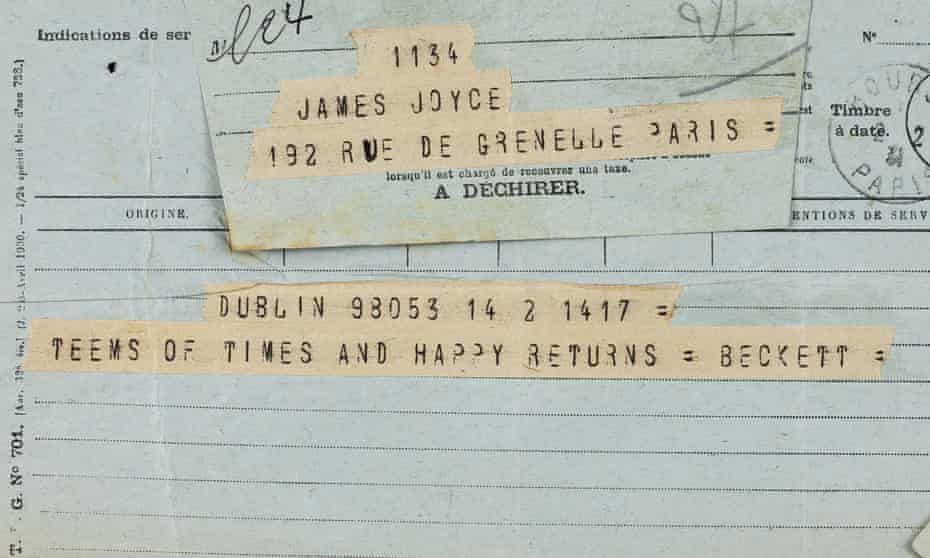 Indications de ser
1134
JAMES JOYCE
192 RUE DE GRENELLE PARIS =
lorsqu'il est chargé de recouvrer une taxe.
A DÉCHIRER.
N°
Timbre
à date.
PARIS
ORIGINE.
ENTIONS DE SERV
DUBLIN 98053 14 2 1417 =
TEEMS OF TIMES AND HAPPY RETURNS = BECKETT =
G. N° 701.